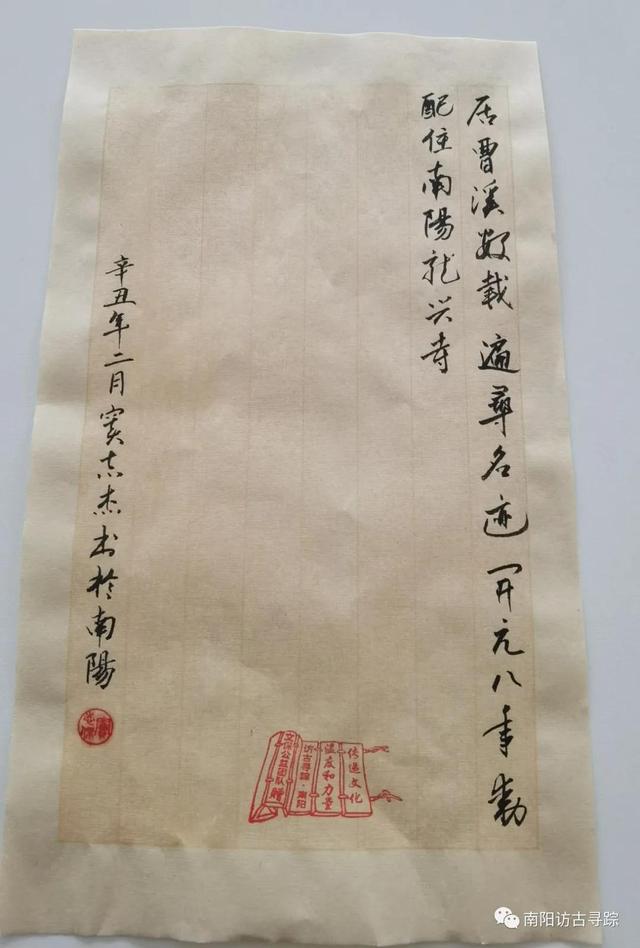 居曹溪數載遍尋名迹開元八年勅
配住南陽龍兴寺
辛丑年二月窦志杰书於南陽
传递文化
温度和力量
访古寻踪·南阳
文保公益团队赠
南阳访古寻踪